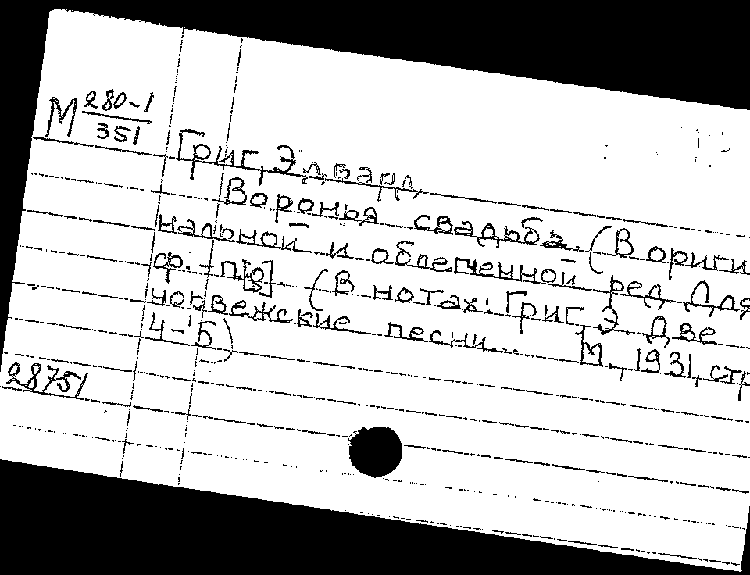 М 280-1/351
Григ, Эдвард
Воронья свадьба. (В ориги
нальной и облегченной ред для
ф.-п[о]. (В нотах: Григ, Э Две
норвежские песни... М., 1931, стр
4-5)
28751